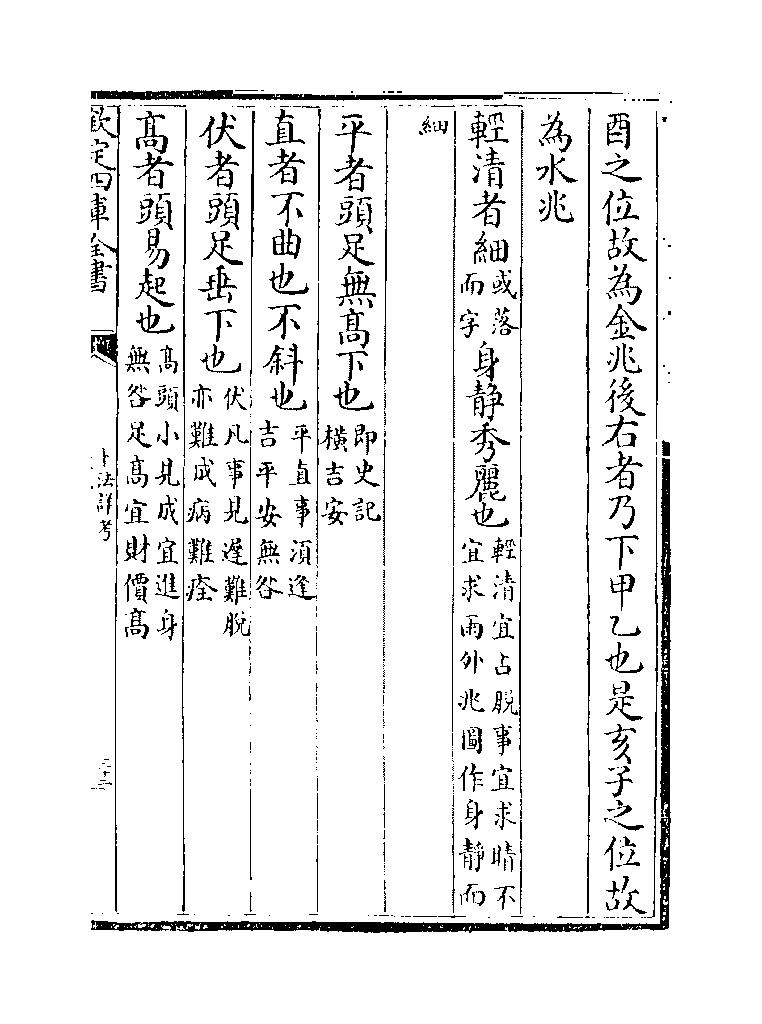 酉之位故為金兆後右者乃下甲乙也是亥子之位故
為水兆
輕清者細或落而字身静秀麗也輕清宜占脱事宜求晴不宜求雨外兆圖作身静而
細
平者頭足無髙下也即史記橫吉安
直者不曲也不斜也平直事須逢吉平安無咎
伏者頭足垂下也伏凡事見遲難脱亦難成病難痊
髙者頭易起也髙頭小見成宜進身無咎足髙宜財價髙
欽定四庫全書
卜法詳考
二十二